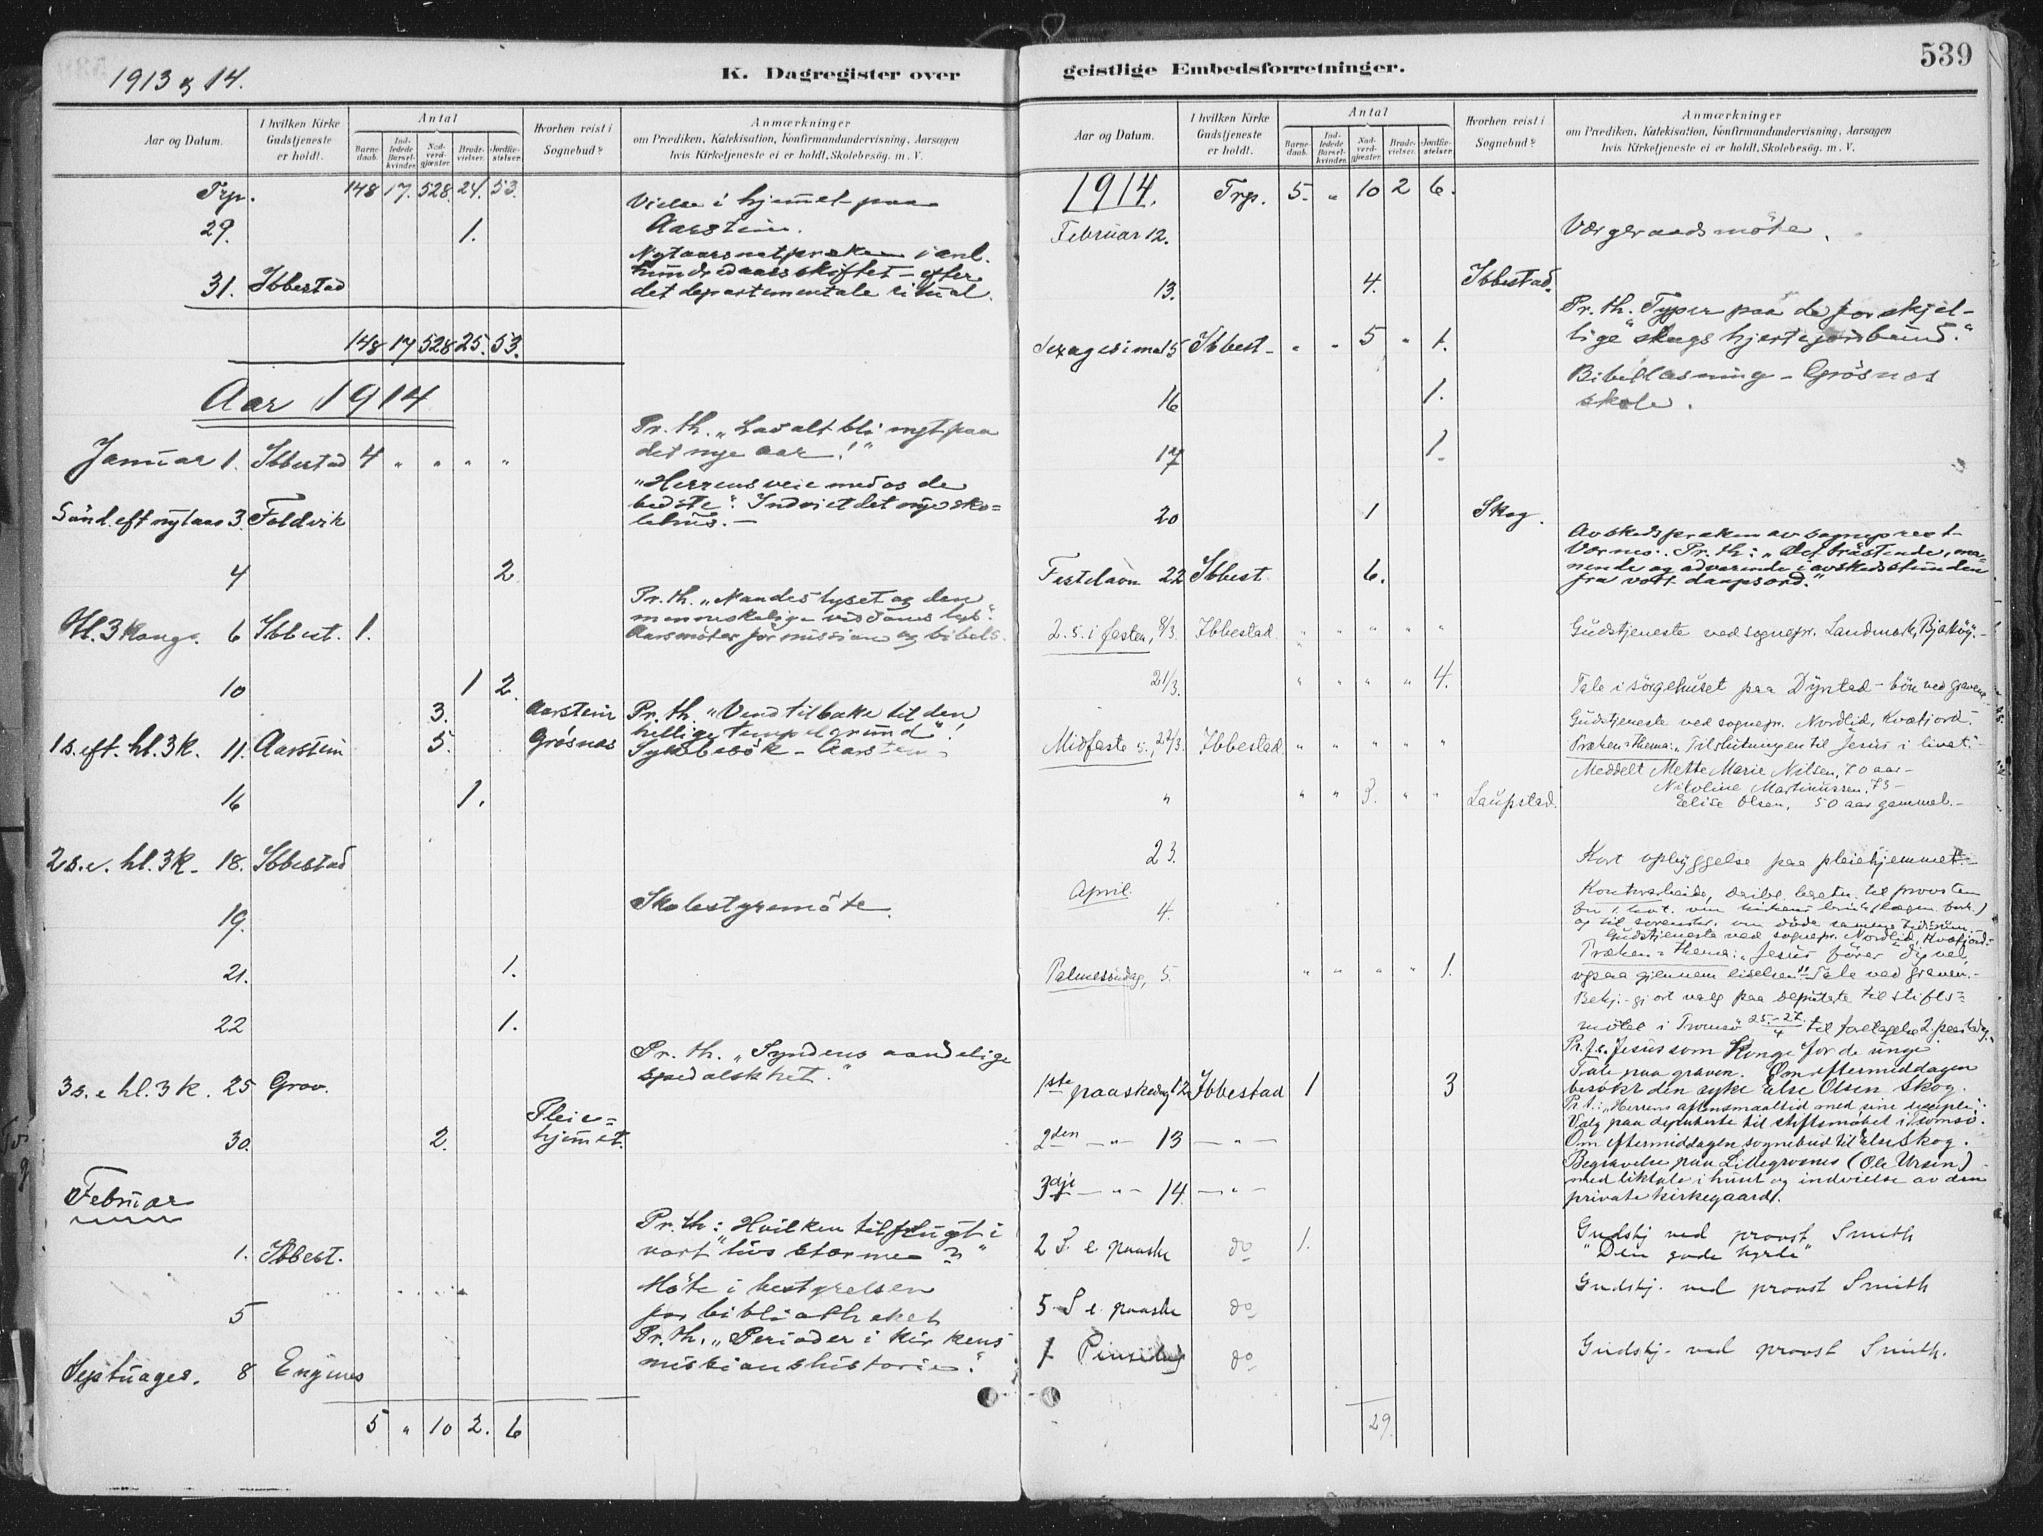 1913 og 14.
K. Dagregister over
Aar og Datum.
I hvilken Kirke Gudstjeneste er holdt.
Antal
Barnedaab.
Indledede Barselkvinder.
Nadverdgjæster.
Brudevielser.
Jordfæstelser.
Hvorhen reist i Sognebud?
Anmærkninger
om Prædiken, Katekisation, Konfirmandundervisning, Aarsagen
hvis Kirketjeneste ei er holdt, Skolebesøg. m. V.
Trp. 148 17. 528. 24. 53.
29. 1. Vielse i hjemmet paa
Aarstein.
31. Ibbestad Nytaarsnat præken i anl.
hundredaarsskiftet - efter
det departementale ritual.
148 17 528 25. 53.
Aar 1914
Januar 1. Ibbestad 4 " " " " Pr. th. "Lad alt bli nyt paa
det nye aar!"
Sönd. eft nytaar 3. Foldvik "Herrens veie med os de
bedste". Indviet det nye sko-
lehus. -
4 2
Hl. 3 Kong. 6 Ibbest. 1. Pr. th. "Naadeslyset og den
menneskelige
Aarsmöter for mission og bibels.
10 1 2.
3. Aarstein
1 s. eft. hl. 3 K. 11. Aarstein 5. Grøsnes Pr. th. "Vend tilbake til den
hellige tempelgrund"!
Sykebesök - Aarstein
16 1.
2 s. e. hl. 3 K. - 18. Ibbestad
19. Skolestyremöte.
21. 1.
22 1.
3 s. e hl. 3 K. 25 Grov. Pr. th. "Syndens aandelige
spedalskhet."
30. 2. Pleie-
hjemmet.
Februar
1. Ibbest. Pr. th: "Hvilken tilflugt i
vort livs storme?"
5 Möte i bestyrelsen
for bibliotheket
Septuages. 8 Engenes Pr. th. "Perioder i kirkens
missionshistorie".
5 " 10 2. 6
geistlige Embedsforretninger.
539
Aar og Datum.
I hvilken Kirke Gudstjeneste er holdt.
Antal
Barnedaab.
Indledede Barselkvinder.
Nadverdgjæster.
Brudevielser.
Jordfæstelser.
Hvorhen reist i Sognebud?
Anmærkninger
om Prædiken, Katekisation, Konfirmandundervisning, Aarsagen
hvis Kirketjeneste ei er holdt, Skolebesøg. m. V.
1914. Trp. 5. " 10 2 6.
Februar 12. Værgeraadsmöte.
13. 4. Ibbestad.
Sexagesima 15 Ibbest - " " 5 " 1. Pr. th. "Typer paa de forskjel-
lige slags hjertejordbund."
16 1. Bibellæsning - Grösnes
skole.
17 1.
20 1 Skog.
Fastelavn 22 Ibbest 6. Avskedspræken av sogneprest
Værnes. Pr. th: "Det tröstende, ma-
nende og advarende i avskedsstunden
fra vort daapsord."
2. s. i fasten, 8/3. Ibbestad. " " " " " Gudstjeneste ved sognepr. Landmark, Bjarköy. -
21/3. " " " " 4. Tale i sörgehuset paa Dyrstad - bön ved graven
Midfaste s., 22/3. Ibbestad " " " " " Gudstjeneste ved sognepr. Nordlid, Kvæfjord. -
Præken = thema: "Tilslutningen til Jesus i livet." -
" " " 3. " " Laupstad. Meddelt Mette Marie Nilsen, 70 aar -
Nikoline Martinussen, 73 -
Elise Olsen, 50 aar gammel. -
23. Kort opbyggelse paa pleiehjemmet. -
April
4. Kontorarbeide, til provsten
og til döde samme tidsrum.
Palmesöndag, 5. " " " " 1. Gudstjeneste ved sognepr. Nordlid, Kvæfjord. -
Præken = thema: "Jesus förer dig vel,
ogsaa gjennem lidelsen". Tale ved graven. -
Bekj. gjort valg paa deputerte til stifts=
mötet i Tromsö 25.-27./4 til foretagelse 2. paaskedag.
1ste paaskedag 12 Ibbestad 1 3 Pr. Jesus som Konge for de unge
Tale paa graven. Om eftermiddagen
besökt den syke Else Olsen Skog.
2den -"- 13 -"- Pr. t.: "Herrens aftensmaaltid med sine disciple".
Valg paa deputerte til stiftsmötet i Tromsö.
Om eftermiddagen sognebud til Else Skog.
3dje -"- 14. -"- Begravelse paa Lillegrosnes (Ole Ursin)
med liktale i huset og indvielse av den
private kirkegaard.
2 S. e. paaske do 1. Gudstj ved provst Smith
"Den gode hyrde"
5. S e. paaske do Gudstj. ved provst Smith
1 Pinsedag do Gudstj. ved provst Smith.
29.